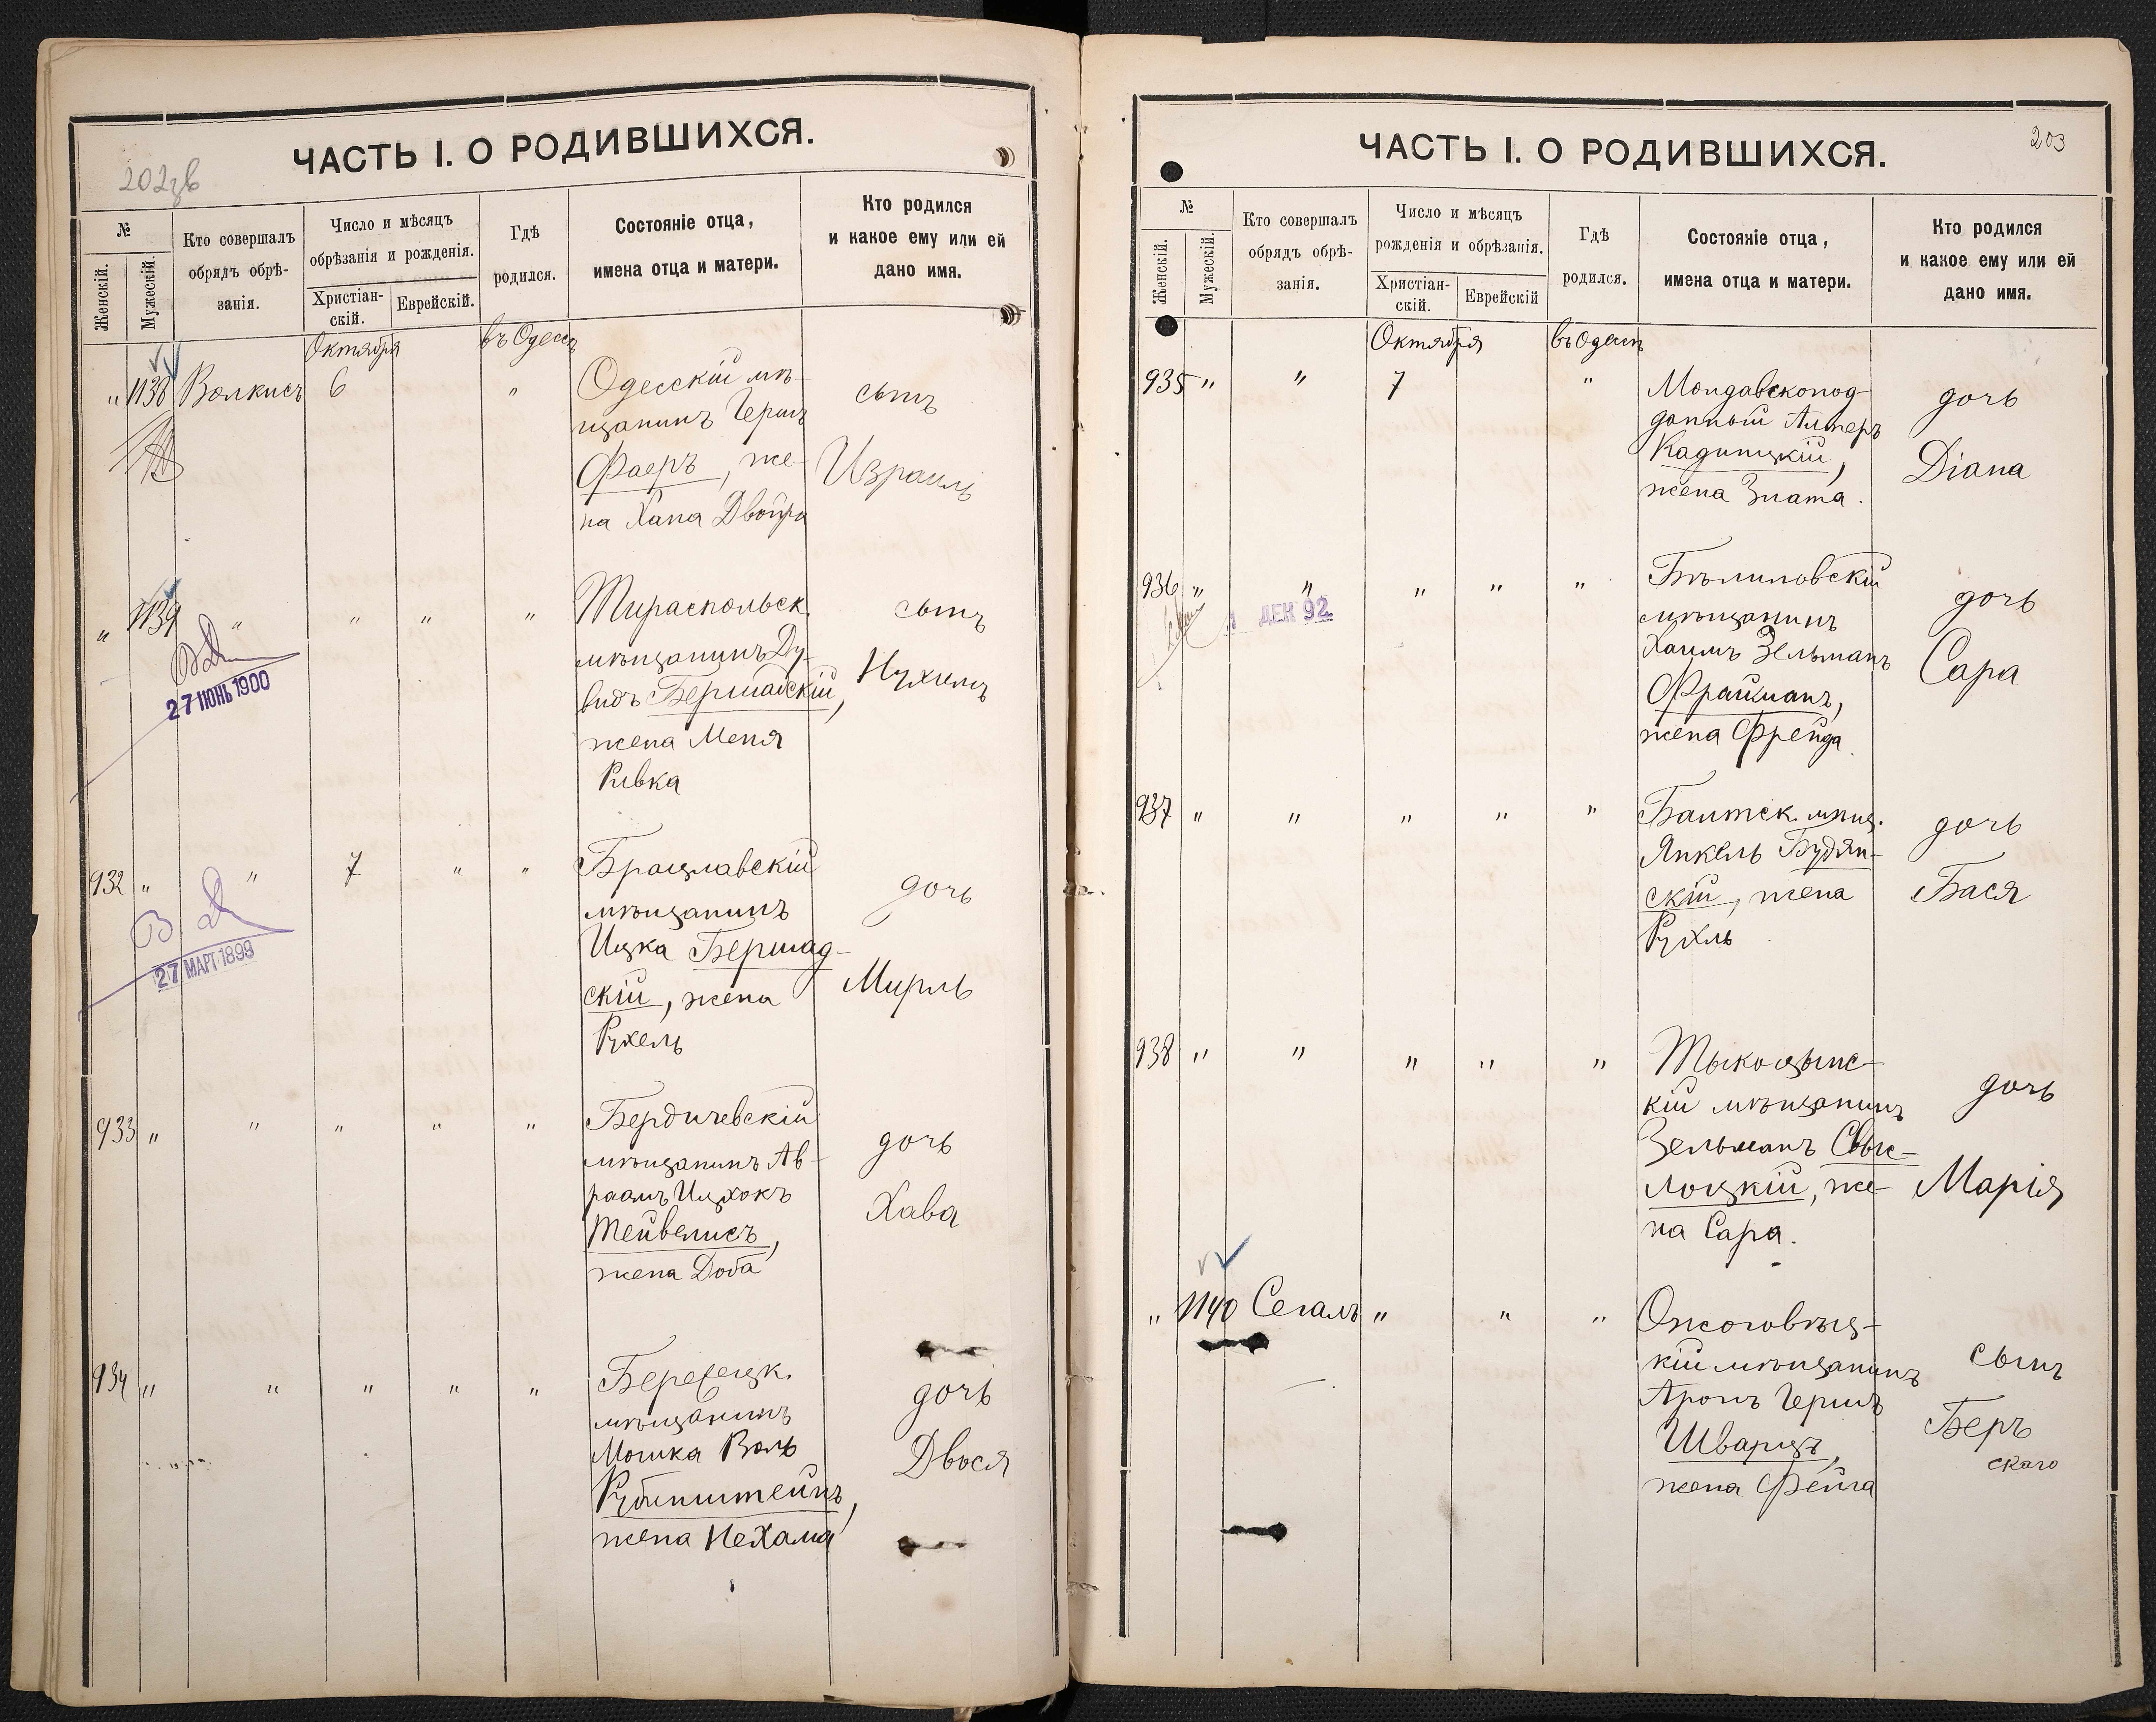 202 об
ЧАСТЬ I. О РОДИВШИХСЯ.
№
Женскій.
Мужескій.
Кто совершалъ
обрядъ обрѣ-
занія.
Число и мѣсяцъ
обрѣзанія и рожденія.
Христіан-
скій.
Еврейскій.
Гдѣ
родился.
Состояніе отца,
имена отца и матери.
Кто родился
и какое ему или ей
дано имя.
Октября
въ Одессѣ
" 1138 Волкисъ 6 "
Одесскій мѣ-
щанинъ Герш
Фаеръ, же-
на Хана Двойра
сынъ
Израиль
" 1139 " " " "
27 ІЮНЬ 1900
Тираспольск.
мѣщанинъ Ду-
видъ Бершадскій,
жена Меня
Ривка
сынъ
Нухимъ
932 " " 7 " "
27 МАРТ 1899
Брацлавскій
мѣщанинъ
Ицка Бершад-
скій, жена
Рухель
дочь
Мирль
933 " " " " "
Бердичевскій
мѣщанинъ Ав-
раамъ Ицхокъ
Тейвелисъ,
жена Доба
дочь
Хава
934 " " " " "
мѣщанинъ
Мошка Воль
Рубинштейнъ,
жена Нехама
дочь
Двося
203
ЧАСТЬ I. О РОДИВШИХСЯ.
№
Женскій.
Мужескій.
Кто совершалъ
обрядъ обрѣ-
занія.
Число и мѣсяцъ
рожденія и обрѣзанія.
Христіан-
скій.
Еврейскій
Гдѣ
родился.
Состояніе отца,
имена отца и матери.
Кто родился
и какое ему или ей
дано имя.
Октября
въ Одессѣ
935 " " 7 "
Молдавскопод-
данный Алтеръ
Кадишскій,
жена Злата.
дочь
Diana
936 " " " " "
ДЕН 92
мѣщанинъ
Хаимъ Зельманъ
Фрайманъ,
жена Фрейда.
дочь
Сара
937 " " " " "
Балтск. мѣщ.
Янкель Будян-
скій, жена
Рухль
дочь
Бася
938 " " " " "
Тыкоцынс-
кій мѣщанинъ
Зельманъ Свис-
лоцкій, же-
на Сара.
дочь
Марія
" 1140 Сегалъ " " "
Ожоговец-
кій мѣщанинъ
Аронъ Гершъ
Шварцъ,
жена Фейга
сынъ
Беръ
скаго